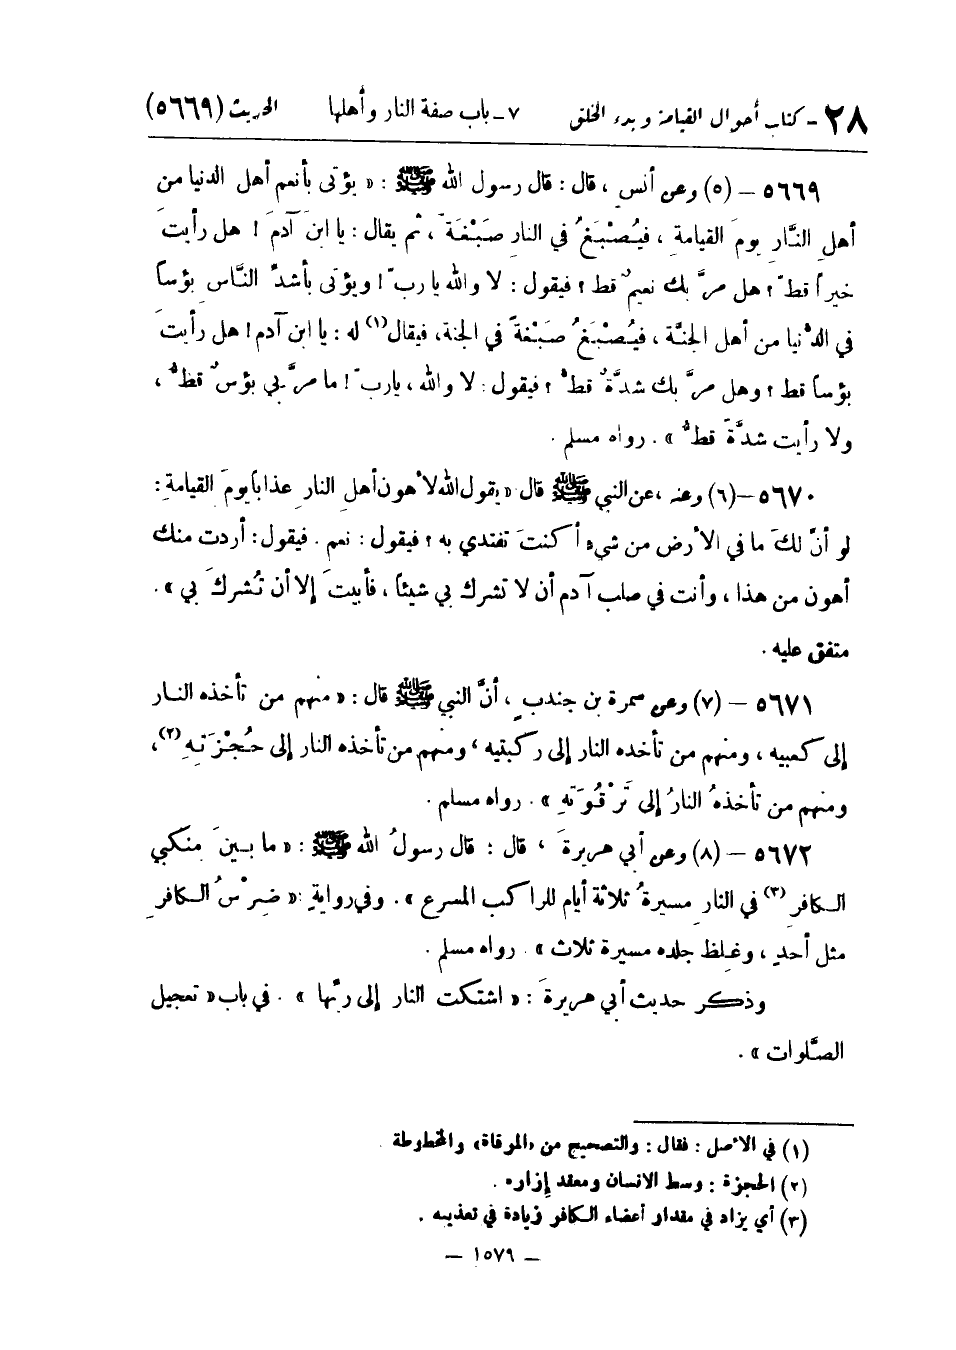 ٢٨ - كتاب أحوال القيامة وبدء الخلق ٧ - باب صفة النار وأهلها الحديث (٥٦٦٩)
٥٦٦٩ - (٥) وعن أنسٍ ، قال : قال رسول الله ﷺ : « يؤتى بأنعم أهل الدنيا من
أهلِ النَّارِ يومَ القيامةِ ، فيُصْبَغُ في النارِ صَبْغَةً ، ثم يقال : يا ابنَ آدمَ ! هل رأيتَ
خيراً قطّ ؟ هل مرَّ بك نعيمٌ قط ؟ فيقول : لا والله يا ربّ ! ويؤتى بأشدِّ النَّاسِ بؤساً
في الدُّنيا من أهل الجنَّة ، فيُصْبَغُ صَبْغةً في الجنة، فيقال(١) له : يا ابن آدم! هل رأيتَ
بؤساً قط ؟ وهل مرَّ بك شدَّةٌ قطُّ ؟ فيقول : لا والله ، يارب ّ! ما مرَّ بي بؤسٌ قطُّ ،
ولا رأيت شدَّةً قطُّ » . رواه مسلم .
٥٦٧٠ - (٦) وعنه ، عن النبي ﷺ قال : « يقول الله لأهون أهلِ النارِ عذاباً يومَ القيامةِ :
لو أنَّ لكَ ما في الأرض من شيء أكنتَ تفتدي به ؟ فيقول : نعم . فيقول : أردت منك
أهون من هذا ، وأنت في صلب آدم أن لا تشرك بي شيئاً ، فأبيتَ إلا أن تُشركَ بي » .
متفق عليه .
٥٦٧١ - (٧) وعن سمرة بن جندبٍ ، أنَّ النبي ﷺ قال : « منهم من تأخذه النار
إلى كعبيه ، ومنهم من تأخذه النار إلى ركبتيه ، ومنهم من تأخذه النار إلى حُجْزَتهِ(٢)،
ومنهم من تأخذهُ النارُ إلى تَرْقُوَتهِ » . رواه مسلم .
٥٦٧٢ - (٨) وعن أبي هريرةَ ، قال : قال رسولُ الله ﷺ : « ما بينَ منكبي
الكافرِ (٣) في النارِ مسيرةُ ثلاثة أيام للراكب المسرع » . وفي روايةٍ : « ضِرْسُ الكافرِ
مثل أحدٍ ، وغلظ جلده مسيرة ثلاث » . رواه مسلم .
وذكر حديث أبي هريرةَ : « اشتكت النار إلى ربِّها » . في باب « تعجيل
الصَّلوات » .
(١) في الأصل : فقال : والتصحيح من «المرقاة» والمخطوطة .
(٢) الحجزة : وسط الانسان ومعقد إزاره .
(٣) أي يزاد في مقدار أعضاء الكافر زيادة في تعذيبه .
— ١٥٧٩ —